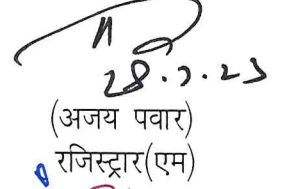 28.7.23
(अजय पवार)
रजिस्ट्रार(एम)